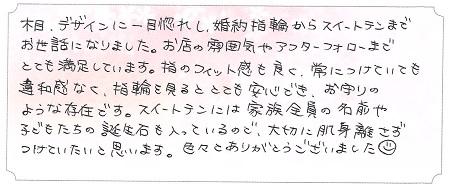 杢目、デザインに一目惚れし、婚約指輪からスイートテンまで
お世話になりました。お店の雰囲気やアフターフォローまで
とても満足しています。指のフィット感も良く、常につけていても
違和感なく、指輪を見るととても安心でき、お守りの
ような存在です。スイートテンには家族全員の名前や
子どもたちの誕生石も入っているので、大切に肌身離さず
つけていたいと思います。色々とありがとうございました☺